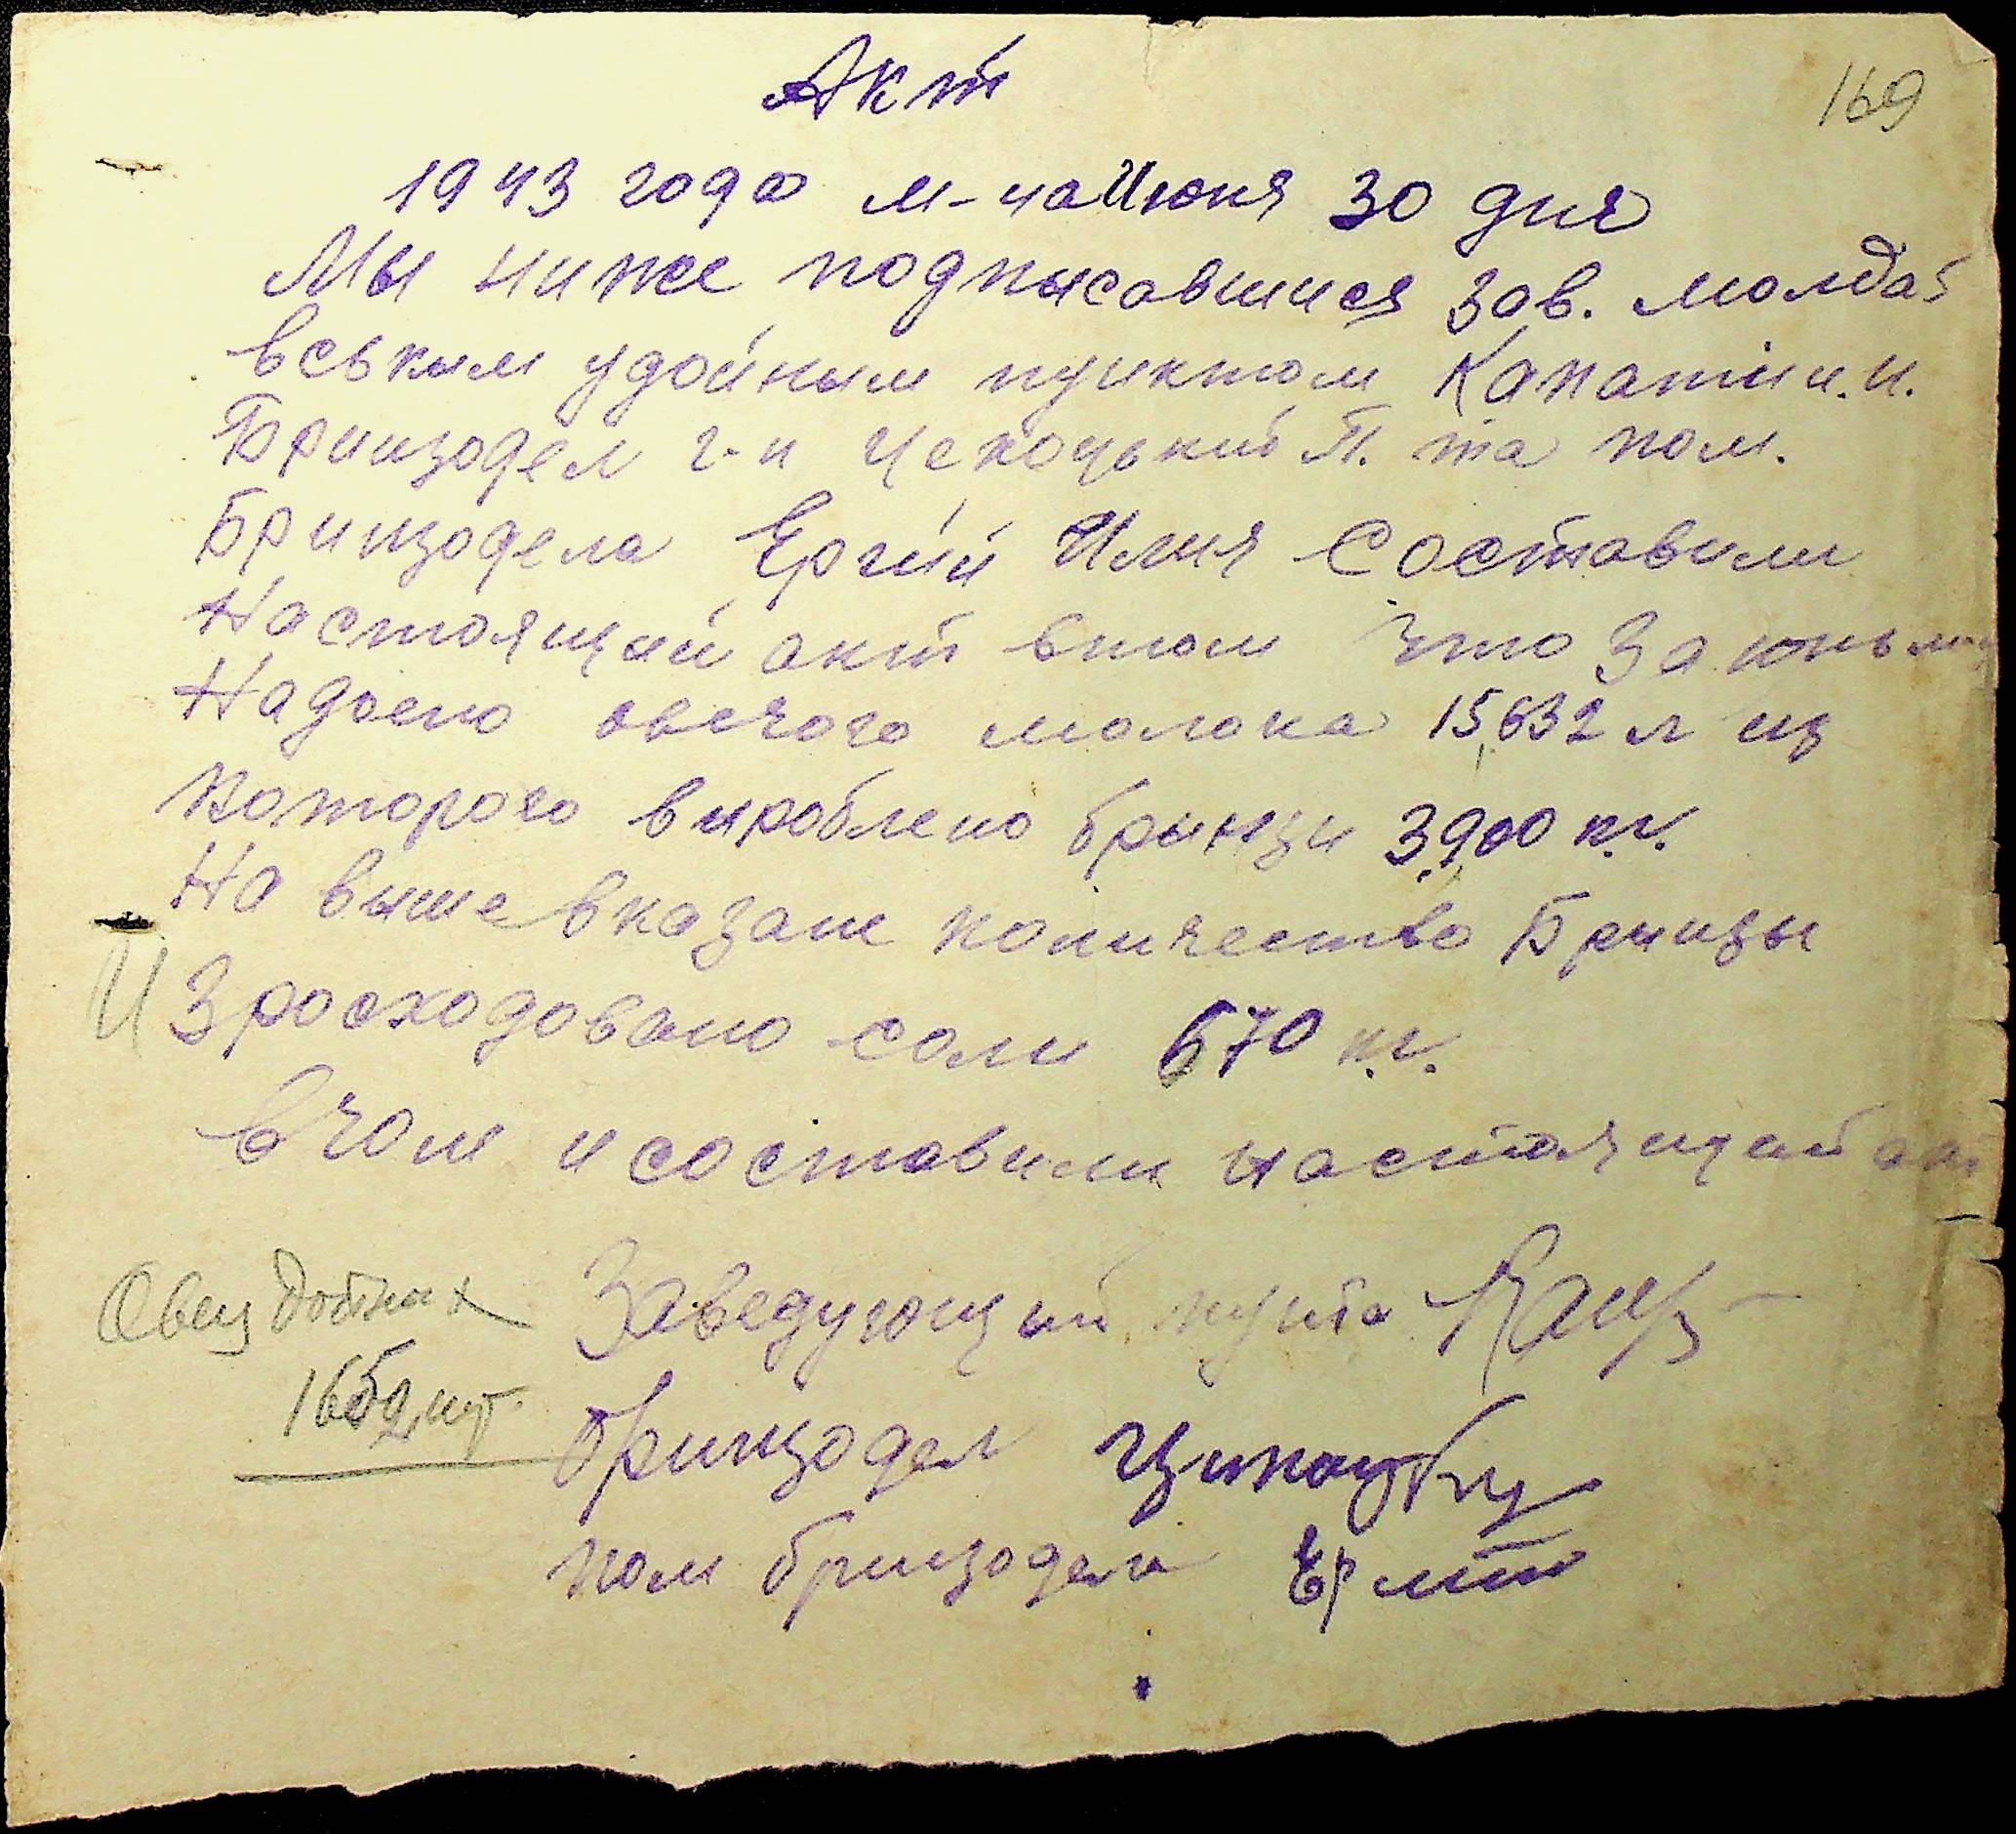 Акт
169
1943 года м-ца Июня 30 дня
Мы ниже подпысавшися зав. молда
вськым удойным пунктом Капатин.И.
Бринзодел г-н Чекоцький П. та пом.
Бринзодела Ергий Илия составили
Настоящий акт втом что За июнь м-ц
Надоено овечого молока 15,632 л из
которого вироблено брынзи 3,900 кг.
На выше вказане количество Брынзы
И Зросходовано соли 670 кг.
Вчом и составили настоящий акт
Овец дойных
1652 шт.
Заведующий пункта
Бринзодел
пом бринзодела